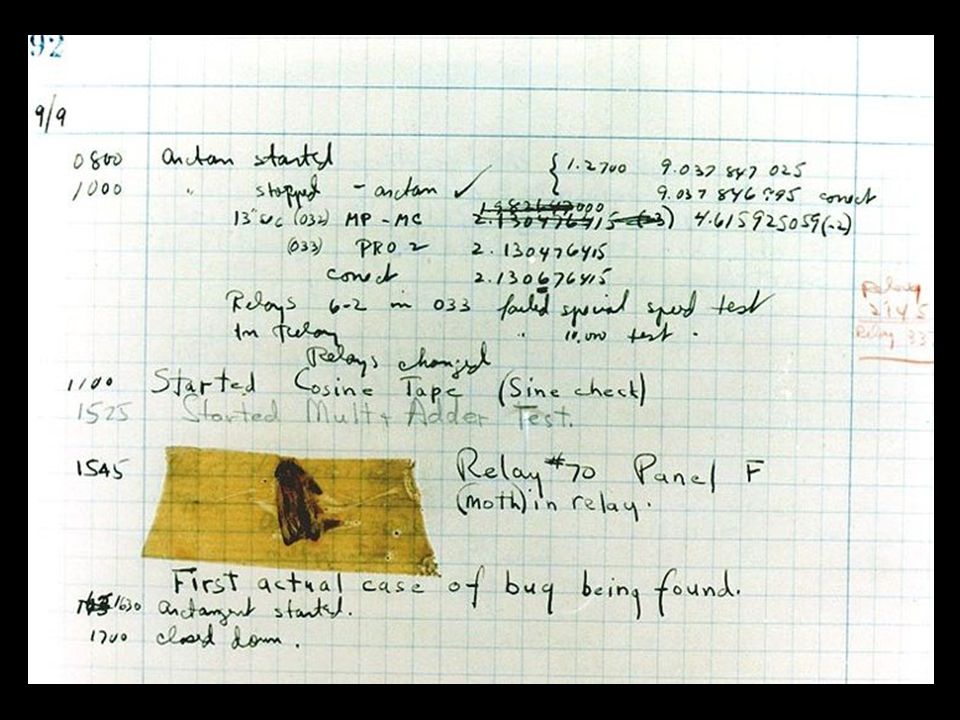 92
9/9
0800 arctan started { 1.2700 9.037 847 025
1000 " stopped - arctan ✓ { 9.037 846 995 correct
13"uc (032) MP - MC 2.130476415 (-3) 4.615925059(-2)
(033) PRO 2 2.130476415
correct 2.130676415
Relays 6-2 in 033 failed special speed test
In Relay " 10,000 test.
Relay
2145
Relay 337
Relays changed
1100 Started Cosine Tape (Sine check)
1525 Started Mult + Adder Test.
1545 Relay #70 Panel F
(moth) in relay.
First actual case of bug being found.
1630 arctangent started.
1700 closed down.